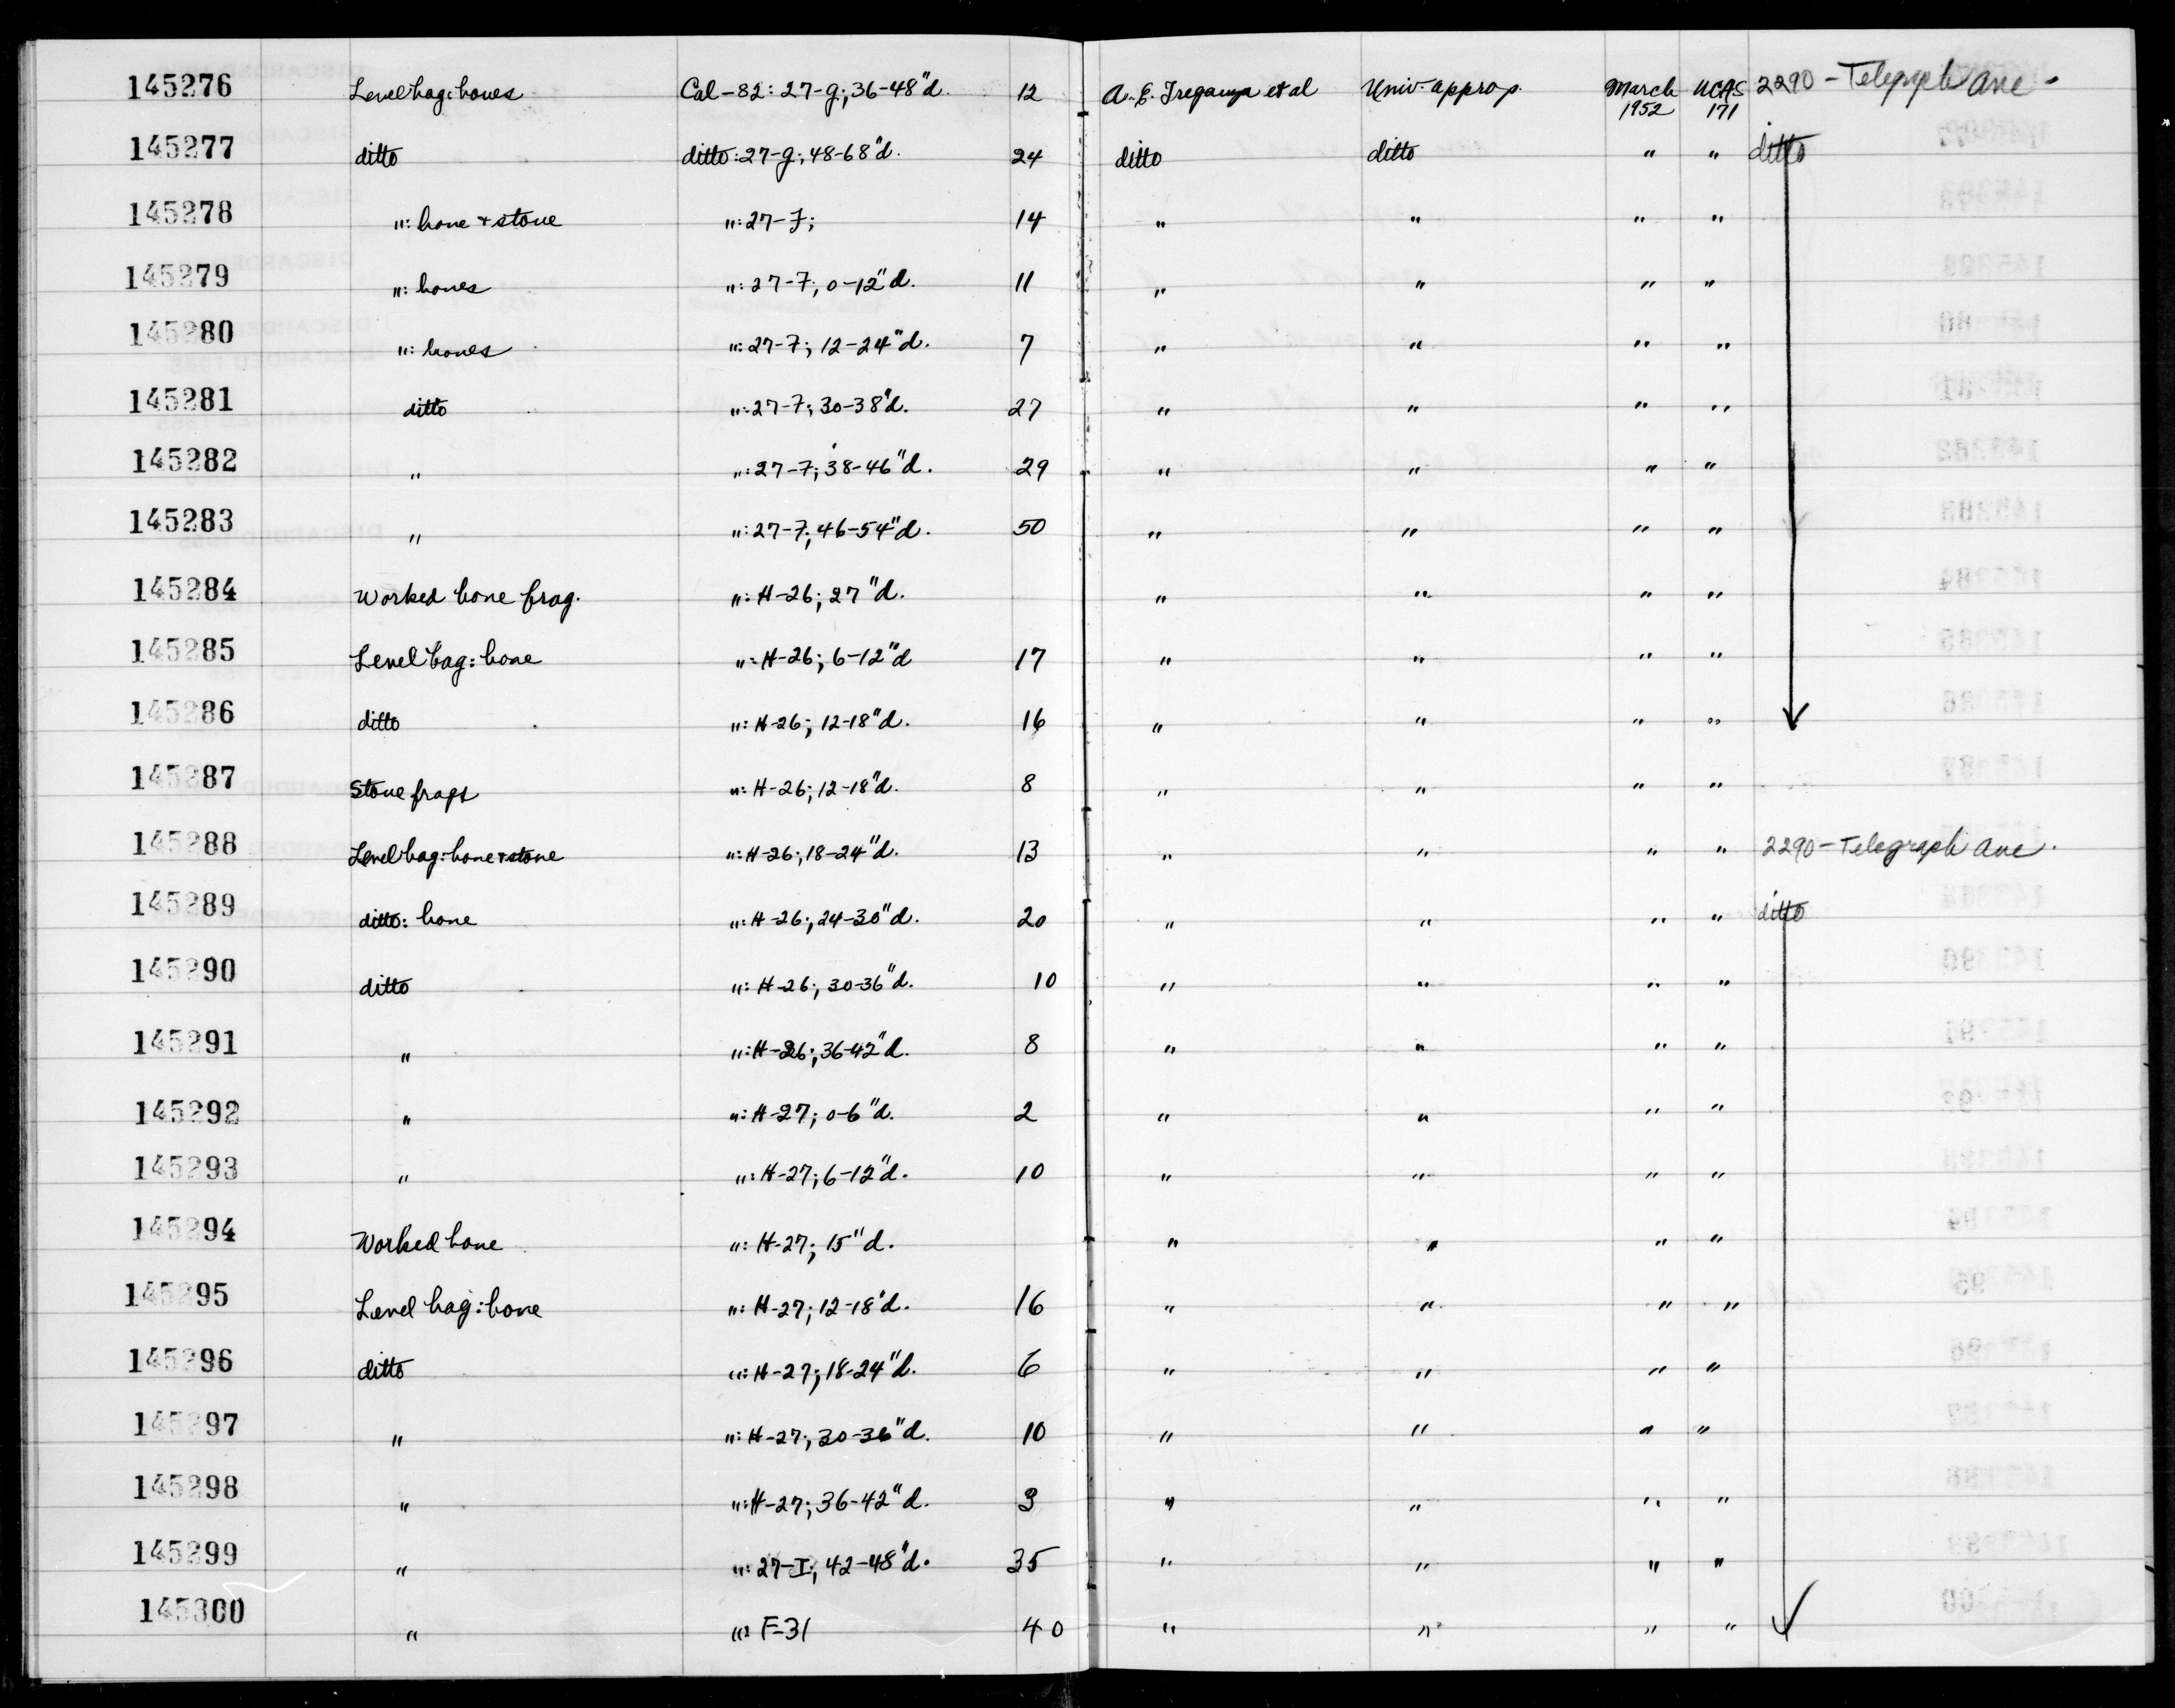 145276 Level bag: bones Cal-82: 27-g; 36-48"d. 12 A.E. Treganza et al Univ. approp. March 1952 UCAS 171 2290 - Telegraph Ave.
145277 ditto ditto: 27-g; 48-68"d. 24 ditto ditto " " ditto
145278 ": bone + stone ": 27-F; 14 " " " "
145279 ": bones ": 27-F; 0-12"d. 11 " " " "
145280 ": bones ": 27-F; 12-24"d. 7 " " " "
145281 ditto ": 27-F; 30-38"d. 27 " " " "
145282 " ": 27-F; 38-46"d. 29 " " " "
145283 " ": 27-F; 46-54"d. 50 " " " "
145284 Worked bone frag. ": H-26; 27"d. " " " "
145285 Level bag: bone ": H-26; 6-12"d 17 " " " "
145286 ditto ": H-26; 12-18"d. 16 " " " "
145287 Stone frags ": H-26; 12-18"d. 8 " " " "
145288 Level bag: bone + stone ": H-26; 18-24"d. 13 " " " " 2290 - Telegraph Ave.
145289 ditto: bone ": H-26; 24-30"d. 20 " " " " ditto
145290 ditto ": H-26; 30-36"d. 10 " " " "
145291 " ": H-26; 36-42"d. 8 " " " "
145292 " ": H-27; 0-6"d. 2 " " " "
145293 " ": H-27; 6-12"d. 10 " " " "
145294 Worked bone ": H-27; 15"d. " " " "
145295 Level bag: bone ": H-27; 12-18"d. 16 " " " "
145296 ditto ": H-27; 18-24"d. 6 " " " "
145297 " ": H-27; 30-36"d. 10 " " " "
145298 " ": H-27; 36-42"d. 3 " " " "
145299 " ": 27-I; 42-48"d. 35 " " " "
145300 " ": F-31 40 " " " "